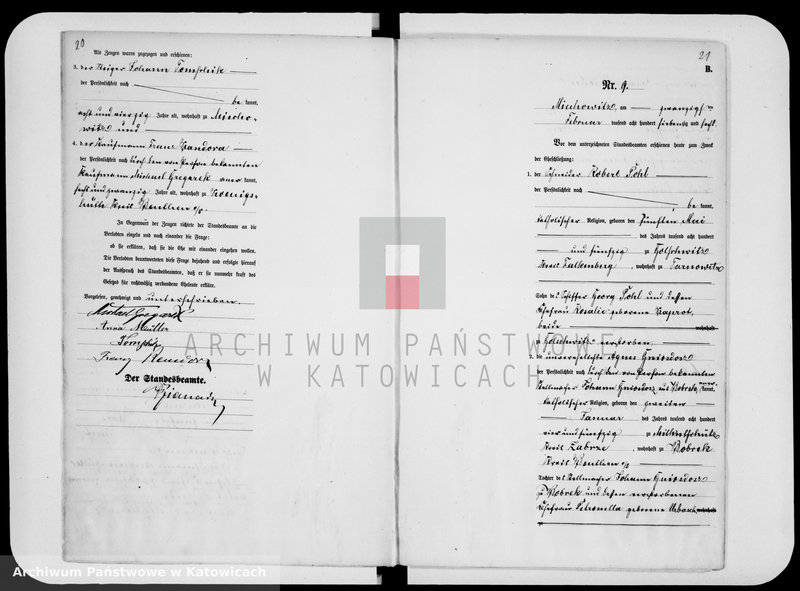 20
Als Zeugen waren zugezogen und erschienen:
3. der Johann
der Persönlichkeit nach
be kannt,
acht und vierzig Jahre alt, wohnhaft zu Miecho-
witz und
4. der Kaufmann Franz
der Persönlichkeit nach durch den von Person bekannten
Kaufmann Michael Gregarek aner kannt,
sechs und zwanzig Jahre alt, wohnhaft zu Koenigs-
hütte Kreis Beuthen o/s.
In Gegenwart der Zeugen richtete der Standesbeamte an die
Verlobten einzeln und nach einander die Frage:
ob sie erklären, daß sie die Ehe mit einander eingehen wollen.
Die Verlobten beantworteten diese Frage bejahend und erfolgte hierauf
der Ausspruch des Standesbeamten, daß er sie nunmehr kraft des
Gesetzes für rechtmäßig verbundene Eheleute erkläre.
Vorgelesen, genehmigt und unterschrieben.
Anna Müller
Franz
Der Standesbeamte.
21
B.
Nr. 9.
Miechowitz, am zwanzigsten
Februar tausend acht hundert siebenzig und sechs.
Vor dem unterzeichneten Standesbeamten erschienen heute zum Zweck
der Eheschließung:
1. der Schneider Robert Pohl
der Persönlichkeit nach
be kannt,
katholischer Religion, geboren den fünften Mai
des Jahres tausend acht hundert
und fünfzig zu
Kreis Falkenberg, wohnhaft zu Tarnowitz
Sohn des Georg Pohl und dessen
Ehefrau Rosalie geborene
beide wohnhaft
zu verstorben.
2. die unverehelichte Agnes
der Persönlichkeit nach durch den von Person bekannten
Stellmacher Johann aus Bobrek aner kannt,
katholischer Religion, geboren den zweiten
Januar des Jahres tausend acht hundert
vier und fünfzig zu
Kreis Zabrze, wohnhaft zu Bobrek
Kreis Beuthen o/s
Tochter des Stellmacher Johann
zu Bobrek und dessen verstorbenen
Ehefrau Petronella geborene wohnhaft
zu
ARCHIWUM PAŃSTWOWE
W KATOWICACH
Archiwum Państwowe w Katowicach